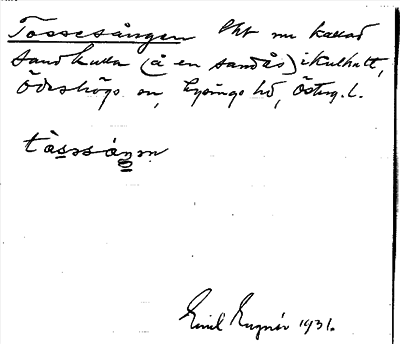 Tossesången Äkt nu kallad
Sandkulla (å en sandås) i Kulhult,
Ödeshögs sn, Lysings hd, Österg. l.
tås̲ssáṉn
Emil Eugnér 1931.